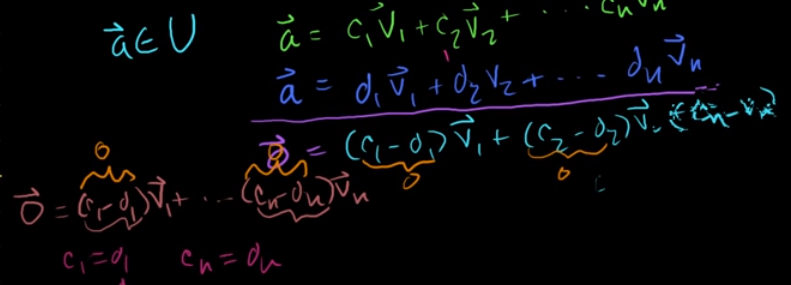 a⃗ ∈ U
a⃗ = c₁v⃗₁ + c₂v⃗₂ + ... cₙvₙ
a⃗ = d₁v⃗₁ + d₂v₂ + ... dₙv⃗ₙ
0⃗ = (c₁-d₁)v⃗₁ + (c₂-d₂)v⃗
0 0
0 0
0⃗ = (c₁-d₁)v⃗₁ + ... (cₙ-dₙ)v⃗ₙ
c₁ = d₁ cₙ = dₙ